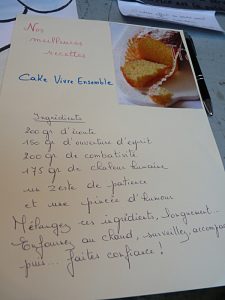 Nos
meilleures
recettes
Cake Vivre Ensemble
Ingrédients
200 gr d'écoute
150 gr d'ouverture d'esprit
200 gr de combativité
175 gr de chaleur humaine
un zeste de patience
et une pincée d'humour
Mélangez ces ingrédients, longuement...
Enfournez au chaud, surveillez, accompa
puis... faites confiance!